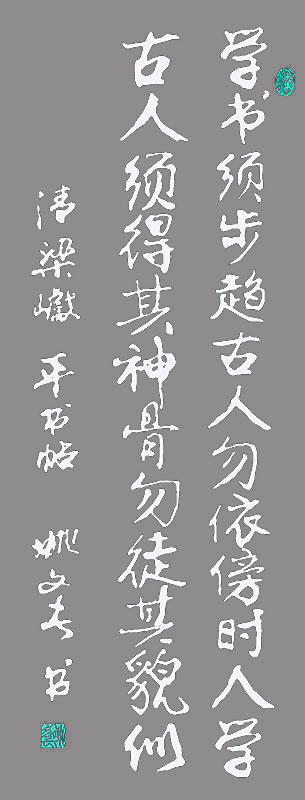 学书须步趋古人勿依傍时人学
古人须得其神骨勿徒其貌似
清梁巘 平书帖 姚文长书